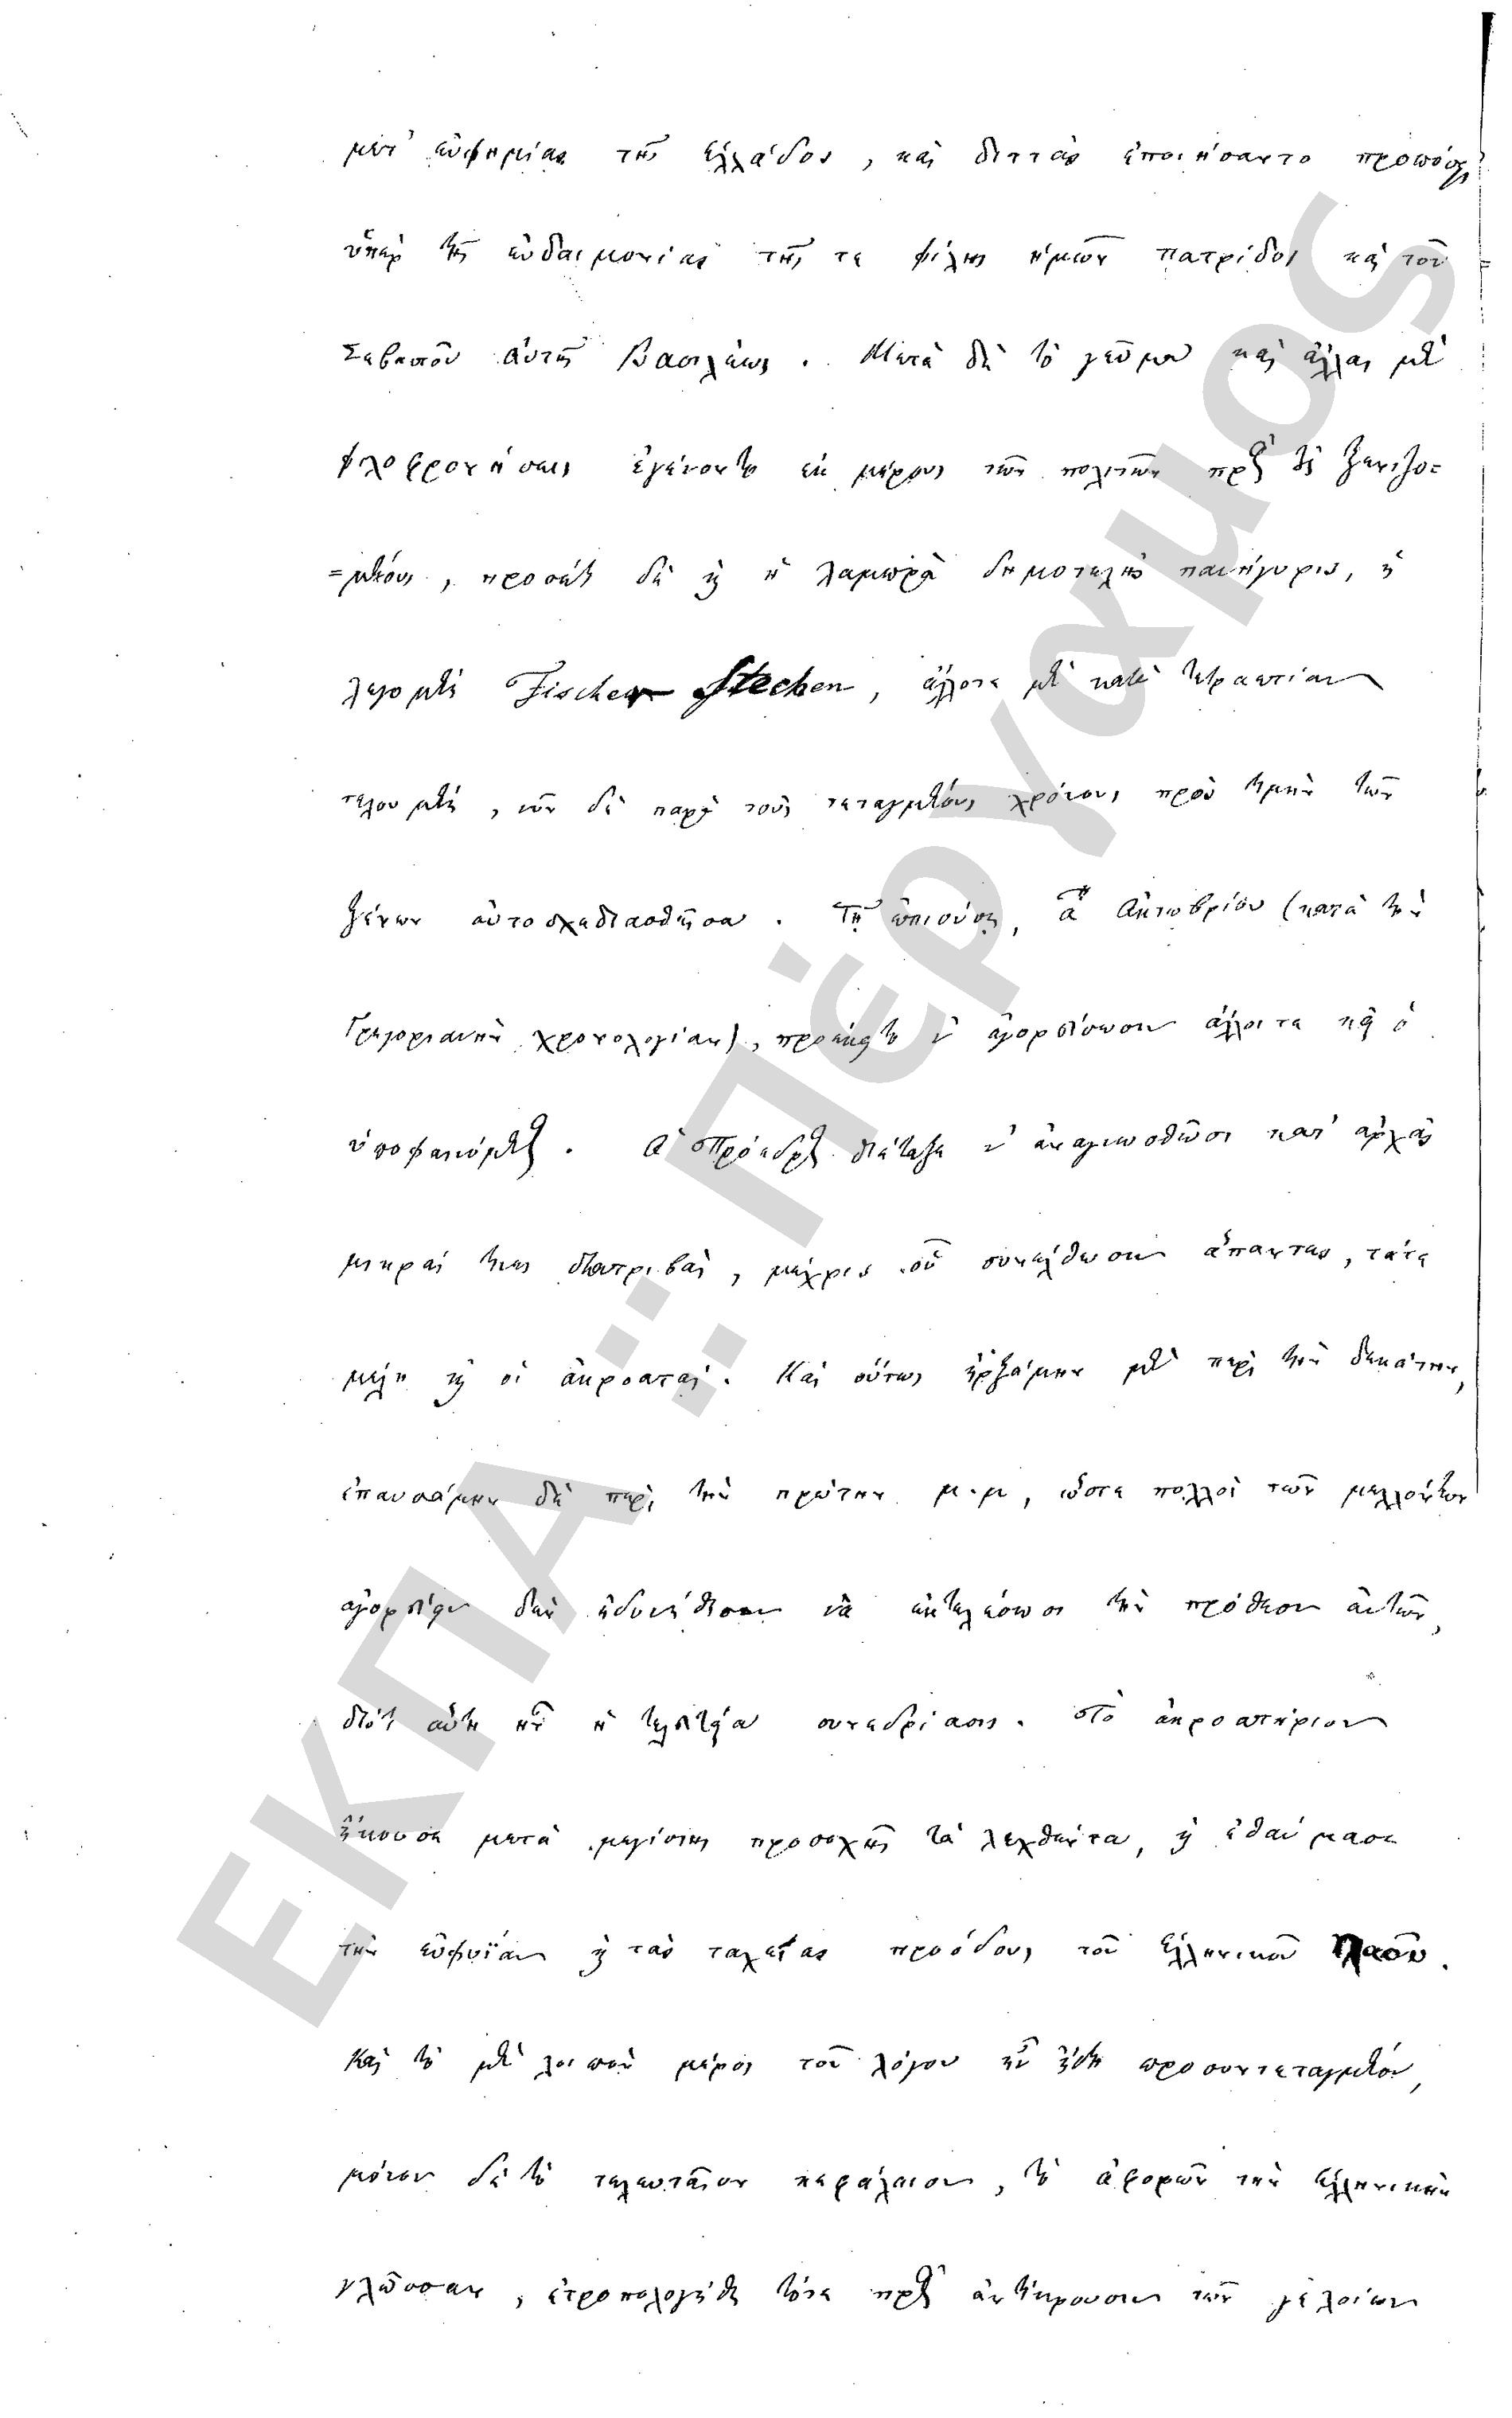 μετ' εὐφημίας τῆς Ἑλλάδος, καὶ διττὰς ἐποιήσαντο προπόσεις
ὑπὲρ τῆς εὐδαιμονίας τῆς τε φίλης ἡμῶν πατρίδος καὶ τοῦ
Σεβαστοῦ αὐτῆς Βασιλέως. Μετὰ δὲ τὸ γεῦμα καὶ ἄλλαι μὲν
φιλοφρονήσεις ἐγένοντο ἐκ μέρους τῶν πολιτῶν πρὸς τοὺς ξενιζο=
=μένους, προσέτι δὲ καὶ ἡ λαμπρὰ δημοτελὴς πανήγυρις, ἡ
λεγομένη Fischer Stechen, ἄλλοτε μὲν κατὰ τετραετίαν
τελουμένη, νῦν δὲ παρὰ τοὺς τεταγμένους χρόνους πρὸς τιμὴν τῶν
ξένων αὐτοσχεδιασθεῖσα. Τῇ ἐπιούσῃ, αῃ Ὀκτωβρίου (κατὰ τὴν
Γρηγοριανὴν χρονολογίαν), προέκειτο ν' ἀγορεύσωσιν ἄλλοι τε καὶ ὁ
ὑποφαινόμενος. Ὁ Πρόεδρος διέταξε ν' ἀναγνωσθῶσι κατ' ἀρχὰς
μικραί τινες διατριβαὶ, μέχρις οὗ συνέλθωσιν ἅπαντες, τά τε
μέλη καὶ οἱ ἀκροαταί. Καὶ οὕτως ἠρξάμην μὲν περὶ τὴν δεκάτην,
ἐπαυσάμην δὲ περὶ τὴν πρώτην μ.μ, ὥστε πολλοὶ τῶν μελλόντων
ἀγορεύειν δὲν ἐδυνήθησαν νὰ ἐκτελέσωσι τὴν πρόθεσιν αὐτῶν,
διότι αὕτη ἦν ἡ τελευταία συνεδρίασις. Τὸ ἀκροατήριον
ἤκουσε μετὰ μεγίστης προσοχῆς τὰ λεχθέντα, καὶ ἐθαύμασε
τὴν εὐφυΐαν καὶ τὰς ταχείας προόδους τοῦ Ἑλληνικοῦ λαοῦ.
Καὶ τὸ μὲν λοιπὸν μέρος τοῦ λόγου ἦν ἤδη προσυντεταγμένον,
μόνον δὲ τὸ τελευταῖον κεφάλαιον, τὸ ἀφορῶν τὴν Ἑλληνικὴν
γλῶσσαν, ἐτροπολογήθη τότε πρὸς ἀντίκρουσιν τῶν γελοίων
ΕΚΠΑ :: Πέργαμος